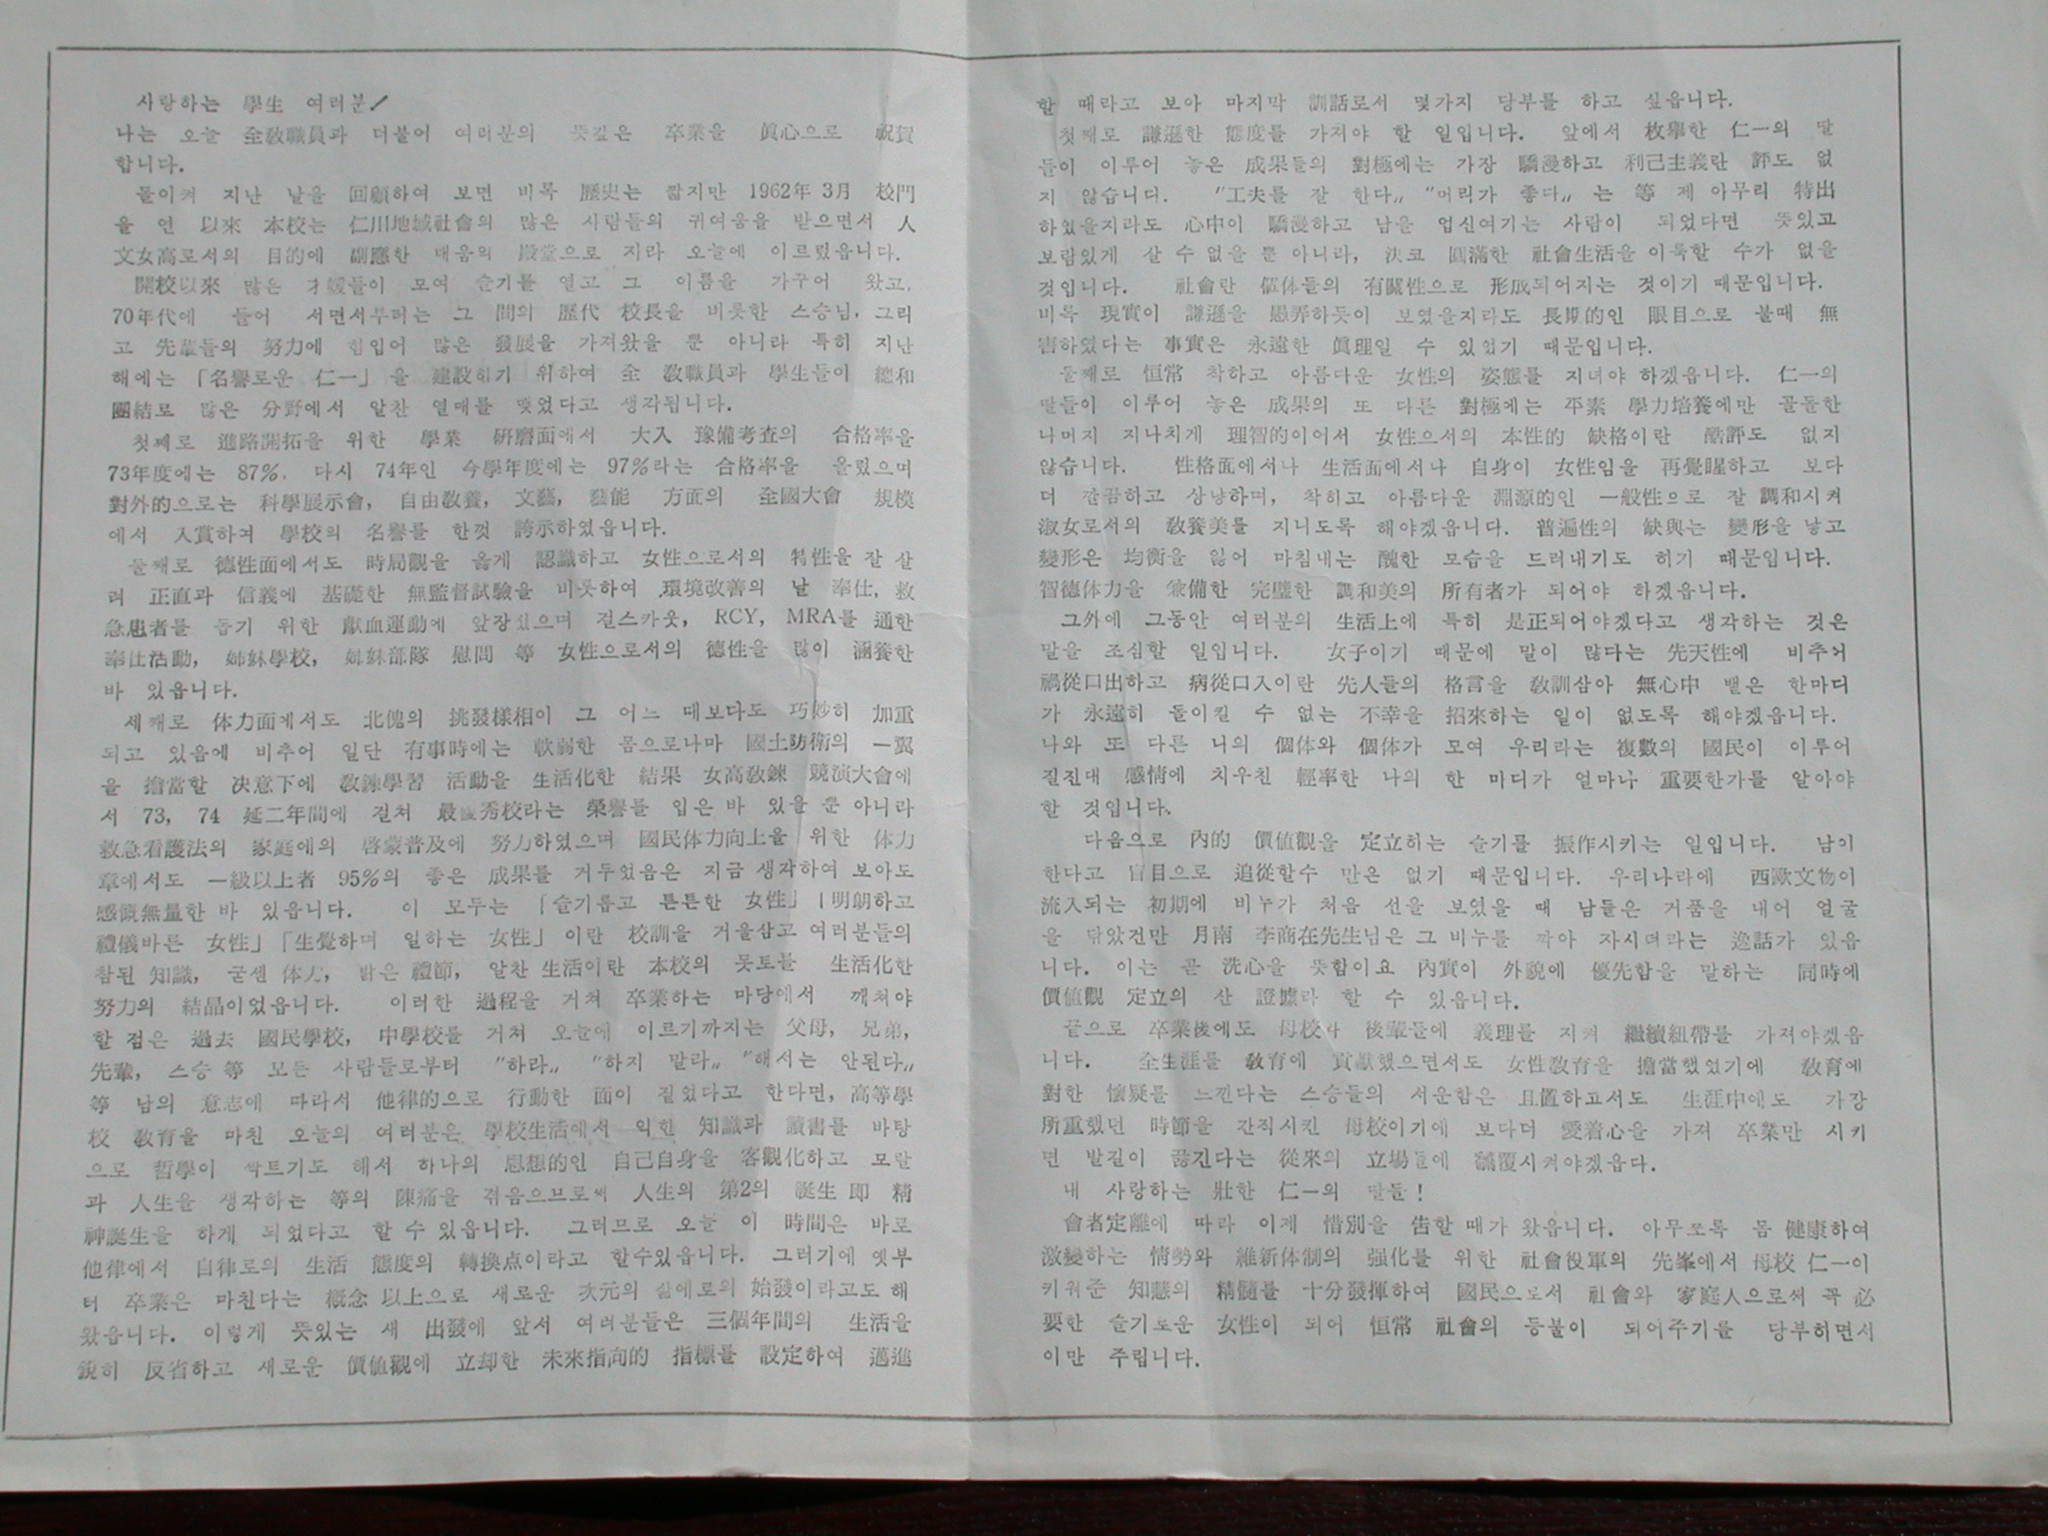 사랑하는 學生 여러분/
나는 오늘 全敎職員과 더불어 여러분의 뜻깊은 卒業을 眞心으로 祝賀
합니다.
돌이켜 지난 날을 回顧하여 보면 비록 歷史는 짧지만 1962年 3月 校門
을 연 以來 本校는 仁川地域社會의 많은 사람들의 귀여움을 받으면서 人
文女高로서의 目的에 副應한 배움의 殿堂으로 자라 오늘에 이르렀읍니다.
開校以來 많은 才媛들이 모여 슬기를 열고 그 이름을 가꾸어 왔고,
70年代에 들어 서면서부터는 그 間의 歷代 校長을 비롯한 스승님, 그리
고 先輩들의 努力에 힘입어 많은 發展을 가져왔을 뿐 아니라 특히 지난
해에는 「名譽로운 仁一」을 建設하기 위하여 全 敎職員과 學生들이 總和
團結로 많은 分野에서 알찬 열매를 맺었다고 생각됩니다.
첫째로 進路開拓을 위한 學業 硏磨面에서 大入 豫備考査의 合格率을
73年度에는 87%, 다시 74年인 今學年度에는 97%라는 合格率을 올렸으며
對外的으로는 科學展示會, 自由敎養, 文藝, 藝能 方面의 全國大會 規模
에서 入賞하여 學校의 名譽를 한껏 誇示하였읍니다.
둘째로 德性面에서도 時局觀을 옳게 認識하고 女性으로서의 特性을 잘 살
려 正直과 信義에 基礎한 無監督試驗을 비롯하여 環境改善의 날 奉仕, 救
急患者를 돕기 위한 獻血運動에 앞장섰으며 걸스카웃, RCY, MRA를 通한
奉仕活動, 姉妹學校, 姉妹部隊 慰問 等 女性으로서의 德性을 많이 涵養한
바 있읍니다.
세째로 体力面에서도 北傀의 挑發樣相이 그 어느 때보다도 巧妙히 加重
되고 있음에 비추어 일단 有事時에는 軟弱한 몸으로나마 國土防衛의 一翼
을 擔當할 决意下에 敎鍊學習 活動을 生活化한 結果 女高敎鍊 競演大會에
서 73, 74 延二年間에 걸쳐 最優秀校라는 榮譽를 입은 바 있을 뿐 아니라
救急看護法의 家庭에의 啓蒙普及에 努力하였으며 國民体力向上을 위한 体力
章에서도 一級以上者 95%의 좋은 成果를 거두었음은 지금 생각하여 보아도
感慨無量한 바 있읍니다. 이 모두는 「슬기롭고 튼튼한 女性」「明朗하고
禮儀바른 女性」「生覺하며 일하는 女性」이란 校訓을 거울삼고 여러분들의
참된 知識, 굳센 体力, 밝은 禮節, 알찬 生活이란 本校의 못토를 生活化한
努力의 結晶이었읍니다. 이러한 過程을 거쳐 卒業하는 마당에서 깨쳐야
할 점은 過去 國民學校, 中學校를 거쳐 오늘에 이르기까지는 父母, 兄弟,
先輩, 스승 等 모든 사람들로부터 〃하라〃 〃하지 말라〃 〃해서는 안된다〃
等 남의 意志에 따라서 他律的으로 行動한 面이 짙었다고 한다면, 高等學
校 敎育을 마친 오늘의 여러분은 學校生活에서 익힌 知識과 讀書를 바탕
으로 哲學이 싹트기도 해서 하나의 思想的인 自己自身을 客觀化하고 모랄
과 人生을 생각하는 等의 陳痛을 겪음으므로써 人生의 第2의 誕生 即 精
神誕生을 하게 되었다고 할 수 있읍니다. 그러므로 오늘 이 時間은 바로
他律에서 自律로의 生活 態度의 轉換点이라고 할수있읍니다. 그러기에 옛부
터 卒業은 마친다는 槪念 以上으로 새로운 次元의 삶에로의 始發이라고도 해
왔읍니다. 이렇게 뜻있는 새 出發에 앞서 여러분들은 三個年間의 生活을
銳히 反省하고 새로운 價値觀에 立却한 未來指向的 指標를 設定하여 邁進
할 때라고 보아 마지막 訓話로서 몇가지 당부를 하고 싶읍니다.
첫째로 謙遜한 態度를 가져야 할 일입니다. 앞에서 枚擧한 仁一의 딸
들이 이루어 놓은 成果들의 對極에는 가장 驕漫하고 利己主義란 評도 없
지 않습니다. 〃工夫를 잘 한다〃 〃머리가 좋다〃 는 等 제 아무리 特出
하였을지라도 心中이 驕漫하고 남을 업신여기는 사람이 되었다면 뜻있고
보람있게 살 수 없을 뿐 아니라, 決코 圓滿한 社會生活을 이룩할 수가 없을
것입니다. 社會란 個体들의 有關性으로 形成되어지는 것이기 때문입니다.
비록 現實이 謙遜을 愚弄하듯이 보였을지라도 長期的인 眼目으로 볼때 無
害하였다는 事實은 永遠한 眞理일 수 있었기 때문입니다.
둘째로 恒常 착하고 아름다운 女性의 姿態를 지녀야 하겠읍니다. 仁一의
딸들이 이루어 놓은 成果의 또 다른 對極에는 平素 學力培養에만 골돌한
나머지 지나치게 理智的이어서 女性으서의 本性的 缺格이란 酷評도 없지
않습니다. 性格面에서나 生活面에서나 自身이 女性임을 再覺醒하고 보다
더 깔끔하고 상냥하며, 착하고 아름다운 淵源的인 一般性으로 잘 調和시켜
淑女로서의 敎養美를 지니도록 해야겠읍니다. 普遍性의 缺與는 變形을 낳고
變形은 均衡을 잃어 마침내는 醜한 모습을 드러내기도 하기 때문입니다.
智德体力을 兼備한 完璧한 調和美의 所有者가 되어야 하겠읍니다.
그外에 그동안 여러분의 生活上에 특히 是正되어야겠다고 생각하는 것은
말을 조심할 일입니다. 女子이기 때문에 말이 많다는 先天性에 비추어
禍從口出하고 病從口入이란 先人들의 格言을 敎訓삼아 無心中 뱉은 한마디
가 永遠히 돌이킬 수 없는 不幸을 招來하는 일이 없도록 해야겠읍니다.
나와 또 다른 너의 個体와 個体가 모여 우리라는 複數의 國民이 이루어
질진대 感情에 치우친 輕率한 나의 한 마디가 얼마나 重要한가를 알아야
할 것입니다.
다음으로 內的 價値觀을 定立하는 슬기를 振作시키는 일입니다. 남이
한다고 盲目으로 追從할수 만은 없기 때문입니다. 우리나라에 西歐文物이
流入되는 初期에 비누가 처음 선을 보였을 때 남들은 거품을 내어 얼굴
을 닦았건만 月南 李商在先生님은 그 비누를 깎아 자시더라는 逸話가 있읍
니다. 이는 곧 洗心을 뜻함이요 內實이 外貌에 優先함을 말하는 同時에
價値觀 定立의 산 證據라 할 수 있읍니다.
끝으로 卒業後에도 母校와 後輩들에 義理를 지켜 繼續紐帶를 가져야겠읍
니다. 全生涯를 敎育에 貢獻했으면서도 女性敎育을 擔當했었기에 敎育에
對한 懷疑를 느낀다는 스승들의 서운함은 且置하고서도 生涯中에도 가장
所重했던 時節을 간직시킨 母校이기에 보다더 愛着心을 가져 卒業만 시키
면 발길이 끊긴다는 從來의 立場들에 飜覆시켜야겠읍다.
내 사랑하는 壯한 仁一의 딸들!
會者定離에 따라 이제 惜別을 告할 때가 왔읍니다. 아무쪼록 몸 健康하여
激變하는 情勢와 維新体制의 强化를 위한 社會役軍의 先峯에서 母校 仁一이
키워준 知慧의 精髓를 十分發揮하여 國民으로서 社會와 家庭人으로써 꼭 必
要한 슬기로운 女性이 되어 恒常 社會의 등불이 되어주기를 당부하면서
이만 주립니다.